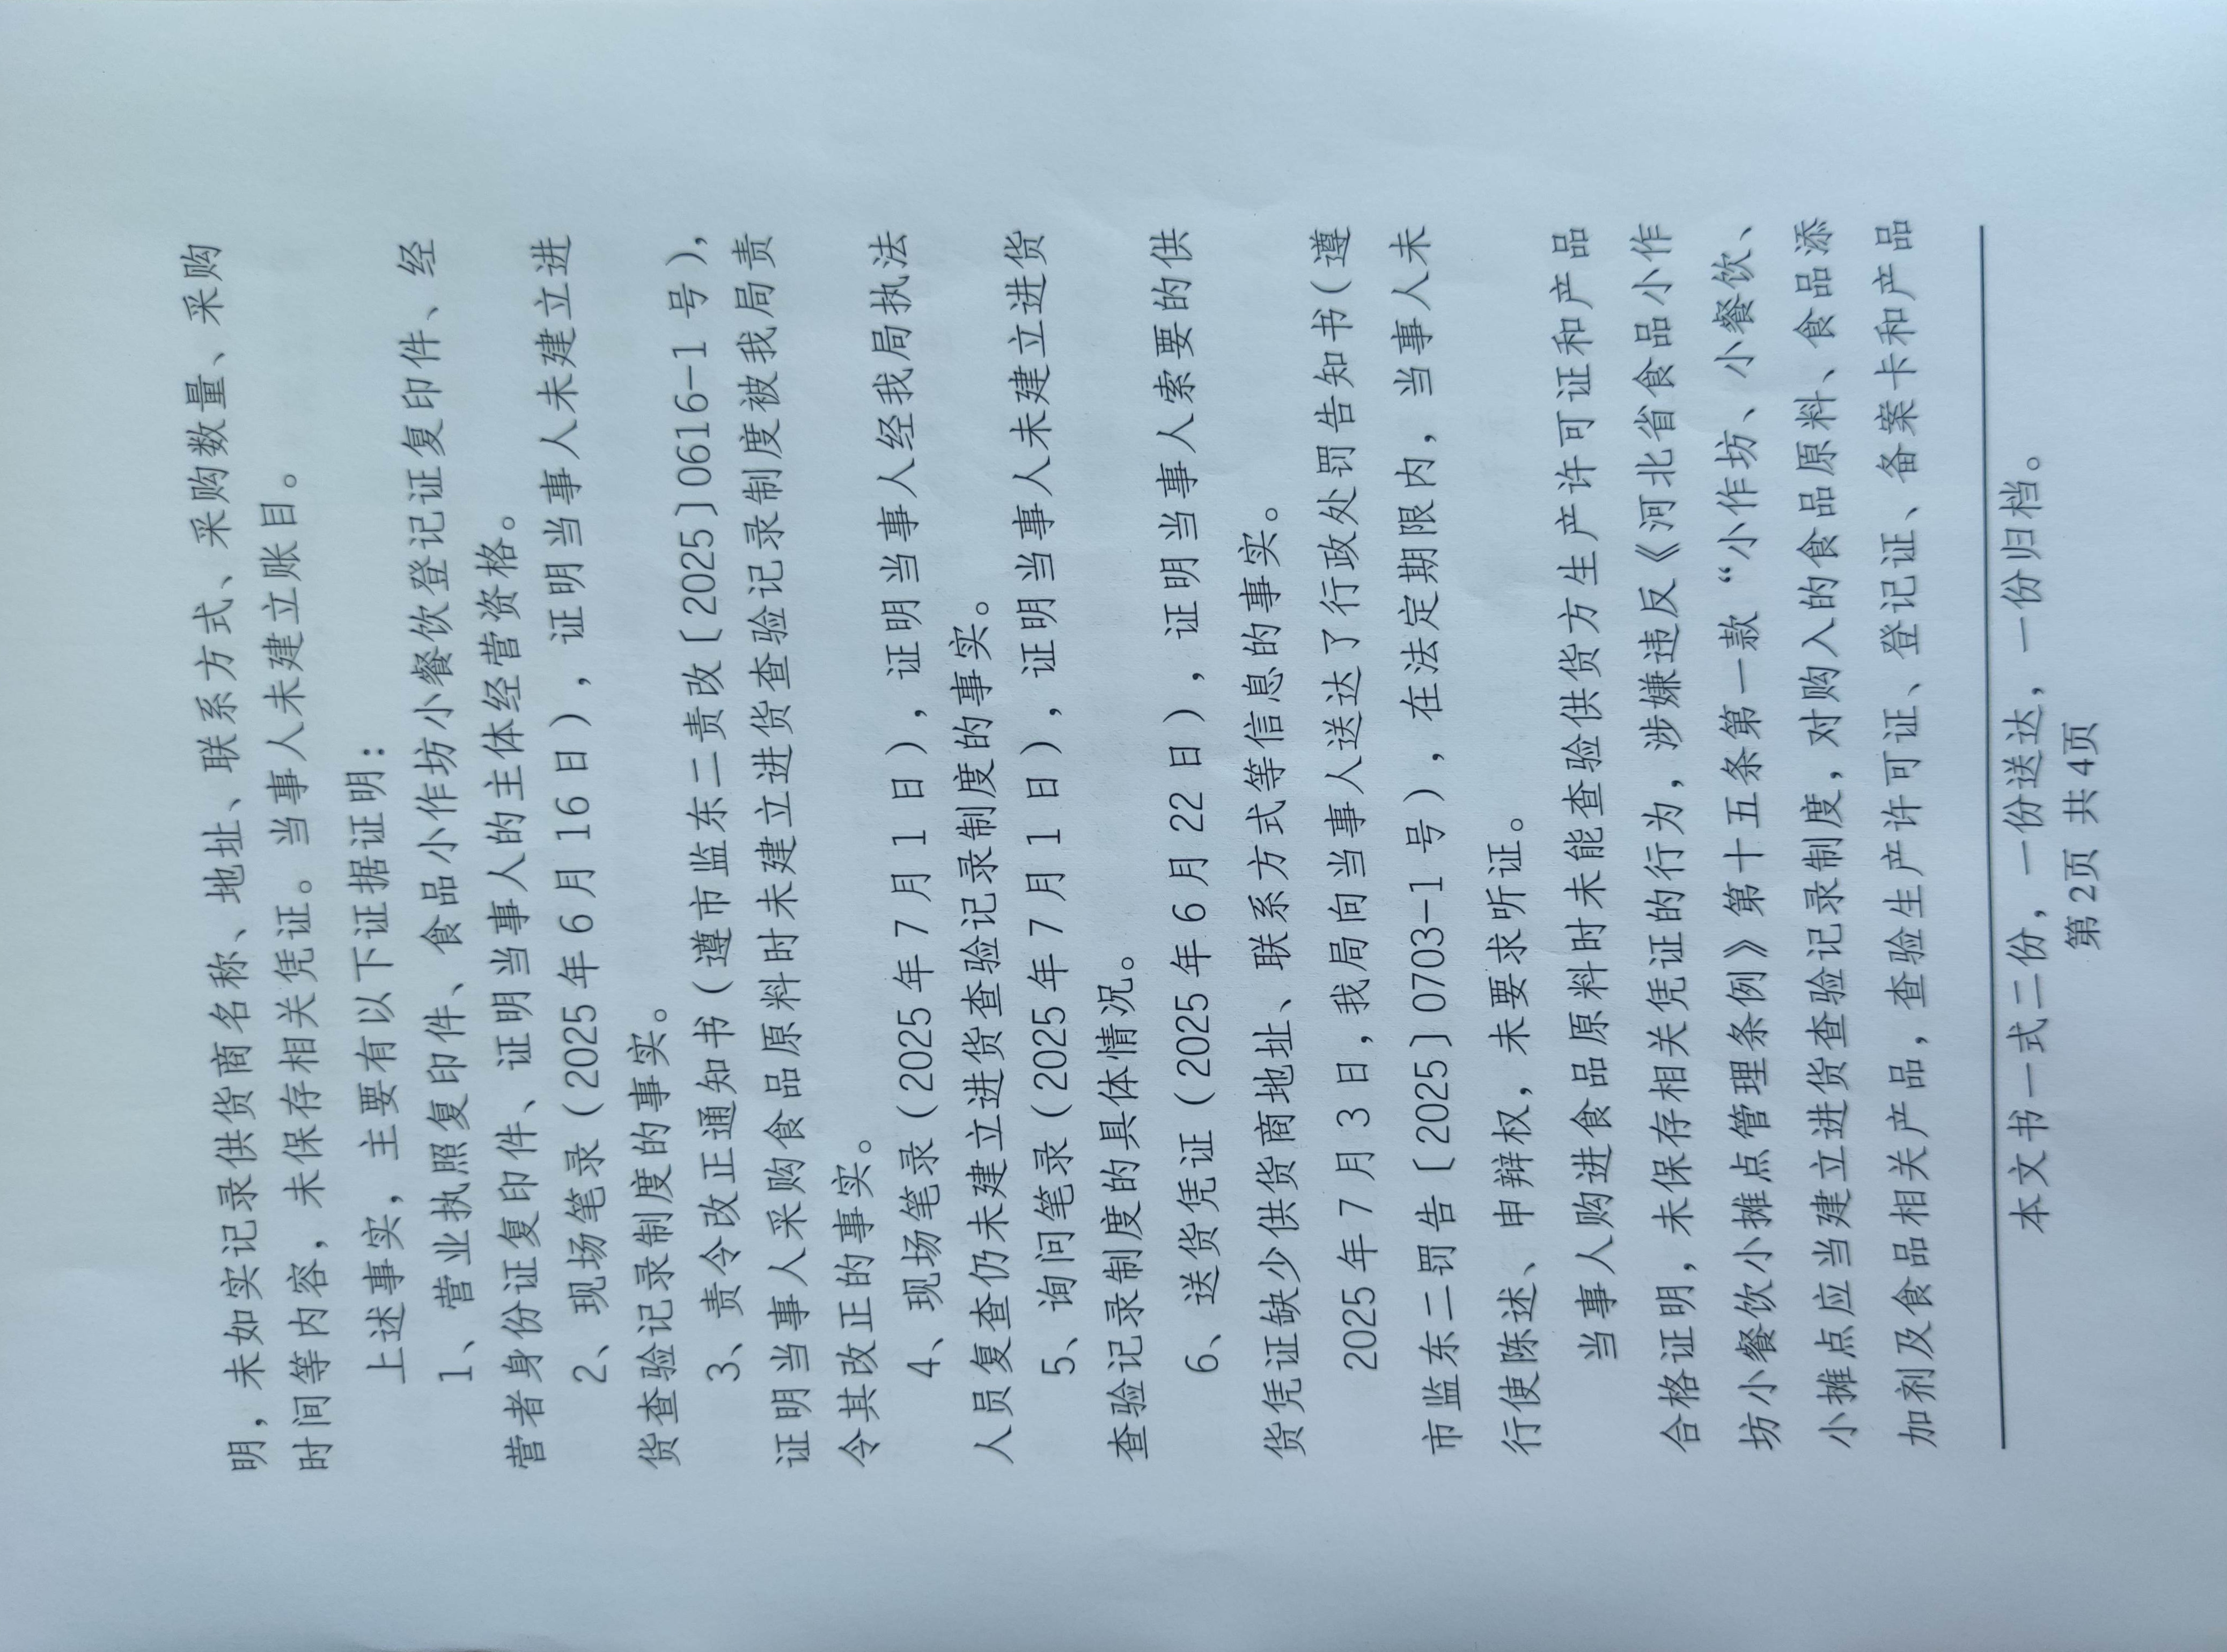 明，未如实记录供货商名称、地址、联系方式、采购数量、采购
时间等内容，未保存相关凭证。当事人未建立账目。
上述事实，主要有以下证据证明：
1、营业执照复印件、食品小作坊小餐饮登记证复印件、经
营者身份证复印件、证明当事人的主体经营资格。
2、现场笔录（2025年6月16日），证明当事人未建立进
货查验记录制度的事实。
3、责令改正通知书（遵市监东二责改〔2025〕0616-1号），
证明当事人采购食品原料时未建立进货查验记录制度被我局责
令其改正的事实。
4、现场笔录（2025年7月1日），证明当事人经我局执法
人员复查仍未建立进货查验记录制度的事实。
5、询问笔录（2025年7月1日），证明当事人未建立进货
查验记录制度的具体情况。
6、送货凭证（2025年6月22日），证明当事人索要的供
货凭证缺少供货商地址、联系方式等信息的事实。
2025年7月3日，我局向当事人送达了行政处罚告知书（遵
市监东二罚告〔2025〕0703-1号），在法定期限内，当事人未
行使陈述、申辩权，未要求听证。
当事人购进食品原料时未能查验供货方生产许可证和产品
合格证明，未保存相关凭证的行为，涉嫌违反《河北省食品小作
坊小餐饮小摊点管理条例》第十五条第一款“小作坊、小餐饮、
小摊点应当建立进货查验记录制度，对购入的食品原料、食品添
加剂及食品相关产品，查验生产许可证、登记证、备案卡和产品
本文书一式二份，一份送达，一份归档。
第2页 共4页